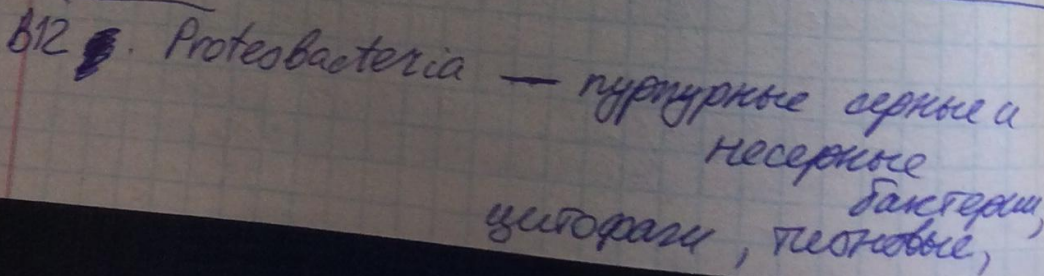 B12. Proteobacteria — пурпурные серные и
несерные
бактерии,
цитофаги, тионовые,